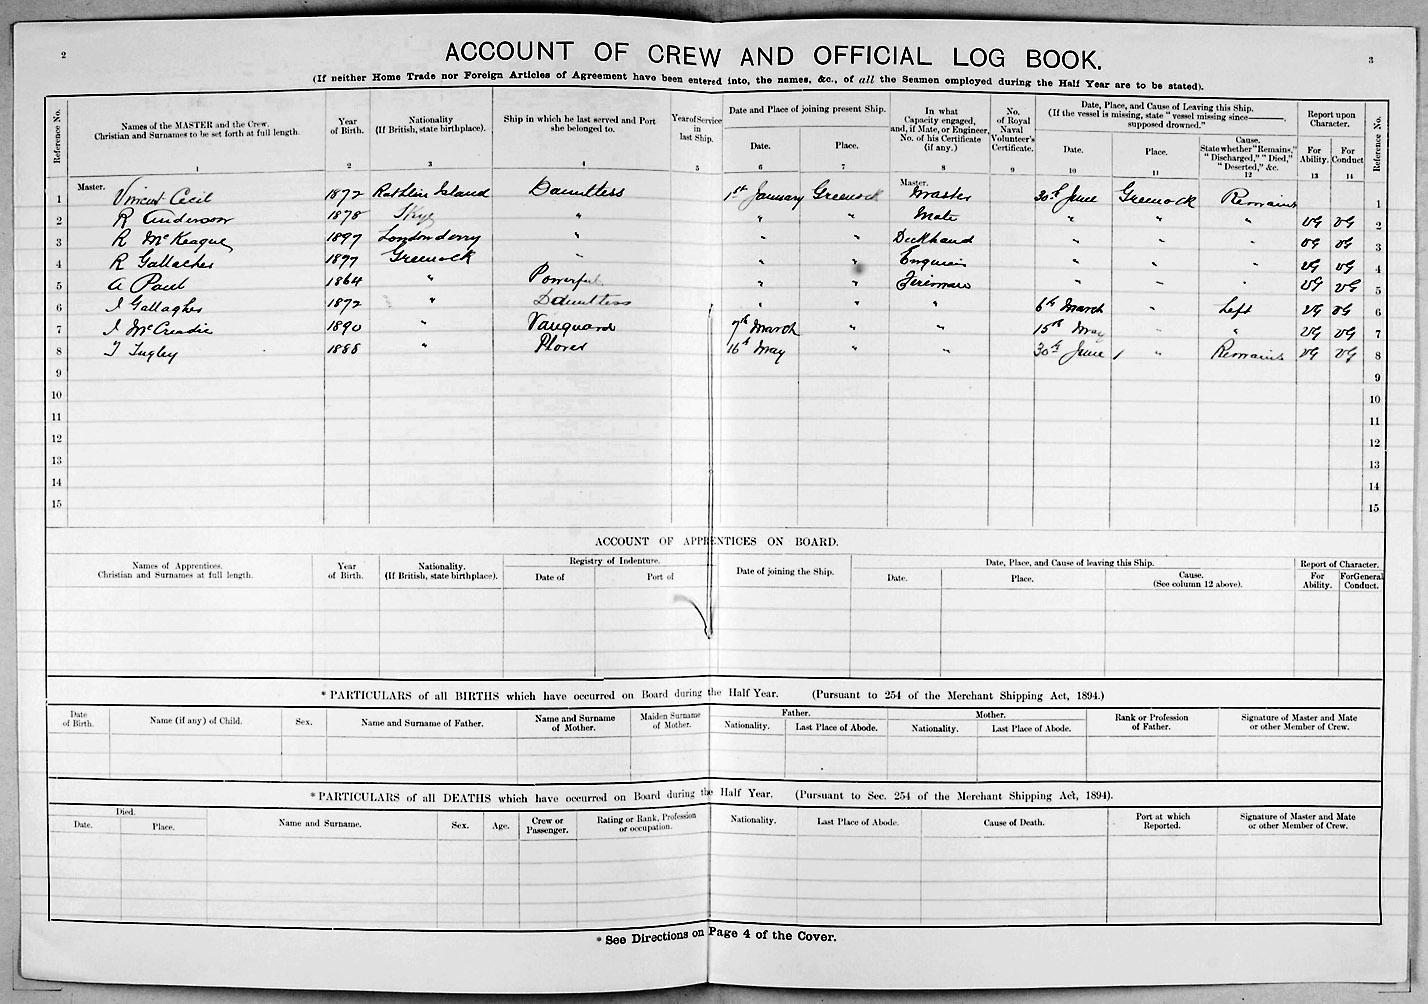 2
3
ACCOUNT OF CREW AND OFFICIAL LOG BOOK.
(If neither Home Trade nor Foreign Articles of Agreement have been entered into, the names, &c., of all the Seamen employed during the Half Year are to be stated).
Reference No. | Names of the MASTER and the Crew. Christian and Surnames to be set forth at full length. | Year of Birth. | Nationality (If British, state birthplace). | Ship in which he last served and Port she belonged to. | Year of Service in last Ship. | Date and Place of joining present Ship. | In what Capacity engaged, and, if Mate, or Engineer, No. of his Certificate (if any.) | No. of Royal Naval Volunteer's Certificate. | Date, Place, and Cause of Leaving this Ship. (If the vessel is missing, state "vessel missing since———, supposed drowned." | Report upon Character. | Reference No.
Date. | Place. | Date. | Place. | Cause. State whether "Remains," "Discharged," "Died," "Deserted," &c. | For Ability. | For Conduct
1 | 2 | 3 | 4 | 5 | 6 | 7 | 8 | 9 | 10 | 11 | 12 | 13 | 14
Master. | Master.
1 Vincent Cecil 1872 Rathlin Island Dauntless 1st January Greenock Master 30th June Greenock Remains 1
2 R Anderson 1878 Skye " " " Mate " " " VG VG 2
3 R McKeague 1897 Londonderry " " " Deckhand " " " VG VG 3
4 R Gallacher 1897 Greenock " " " " " " VG VG 4
5 A Paul 1864 " Powerful " " Fireman " " " VG VG 5
6 J Gallagher 1872 " Dauntless " " " 6th March " Left VG VG 6
7 J McCreadie 1890 " Vanguard 7th March " " 15th May " " VG VG 7
8 T Tugley 1888 " Plover 16th May " " 30th June " Remains VG VG 8
9 9
10 10
11 11
12 12
13 13
14 14
15 15
ACCOUNT OF APPRENTICES ON BOARD.
Names of Apprentices. Christian and Surnames at full length. | Year of Birth. | Nationality. (If British, state birthplace). | Registry of Indenture. | Date of joining the Ship. | Date, Place, and Cause of leaving this Ship. | Report of Character.
Date of | Port of | Date. | Place. | Cause. (See column 12 above). | For Ability. | For General Conduct.
*PARTICULARS of all BIRTHS which have occurred on Board during the Half Year. (Pursuant to 254 of the Merchant Shipping Act, 1894.)
Date of Birth. | Name (if any) of Child. | Sex. | Name and Surname of Father. | Name and Surname of Mother. | Maiden Surname of Mother. | Father. | Mother. | Rank or Profession of Father. | Signature of Master and Mate or other Member of Crew.
Nationality. | Last Place of Abode. | Nationality. | Last Place of Abode.
*PARTICULARS of all DEATHS which have occurred on Board during the Half Year. (Pursuant to Sec. 254 of the Merchant Shipping Act, 1894).
Died. | Name and Surname. | Sex. | Age. | Crew or Passenger. | Rating or Rank, Profession or occupation. | Nationality. | Last Place of Abode. | Cause of Death. | Port at which Reported. | Signature of Master and Mate or other Member of Crew.
Date. | Place.
*See Directions on Page 4 of the Cover.